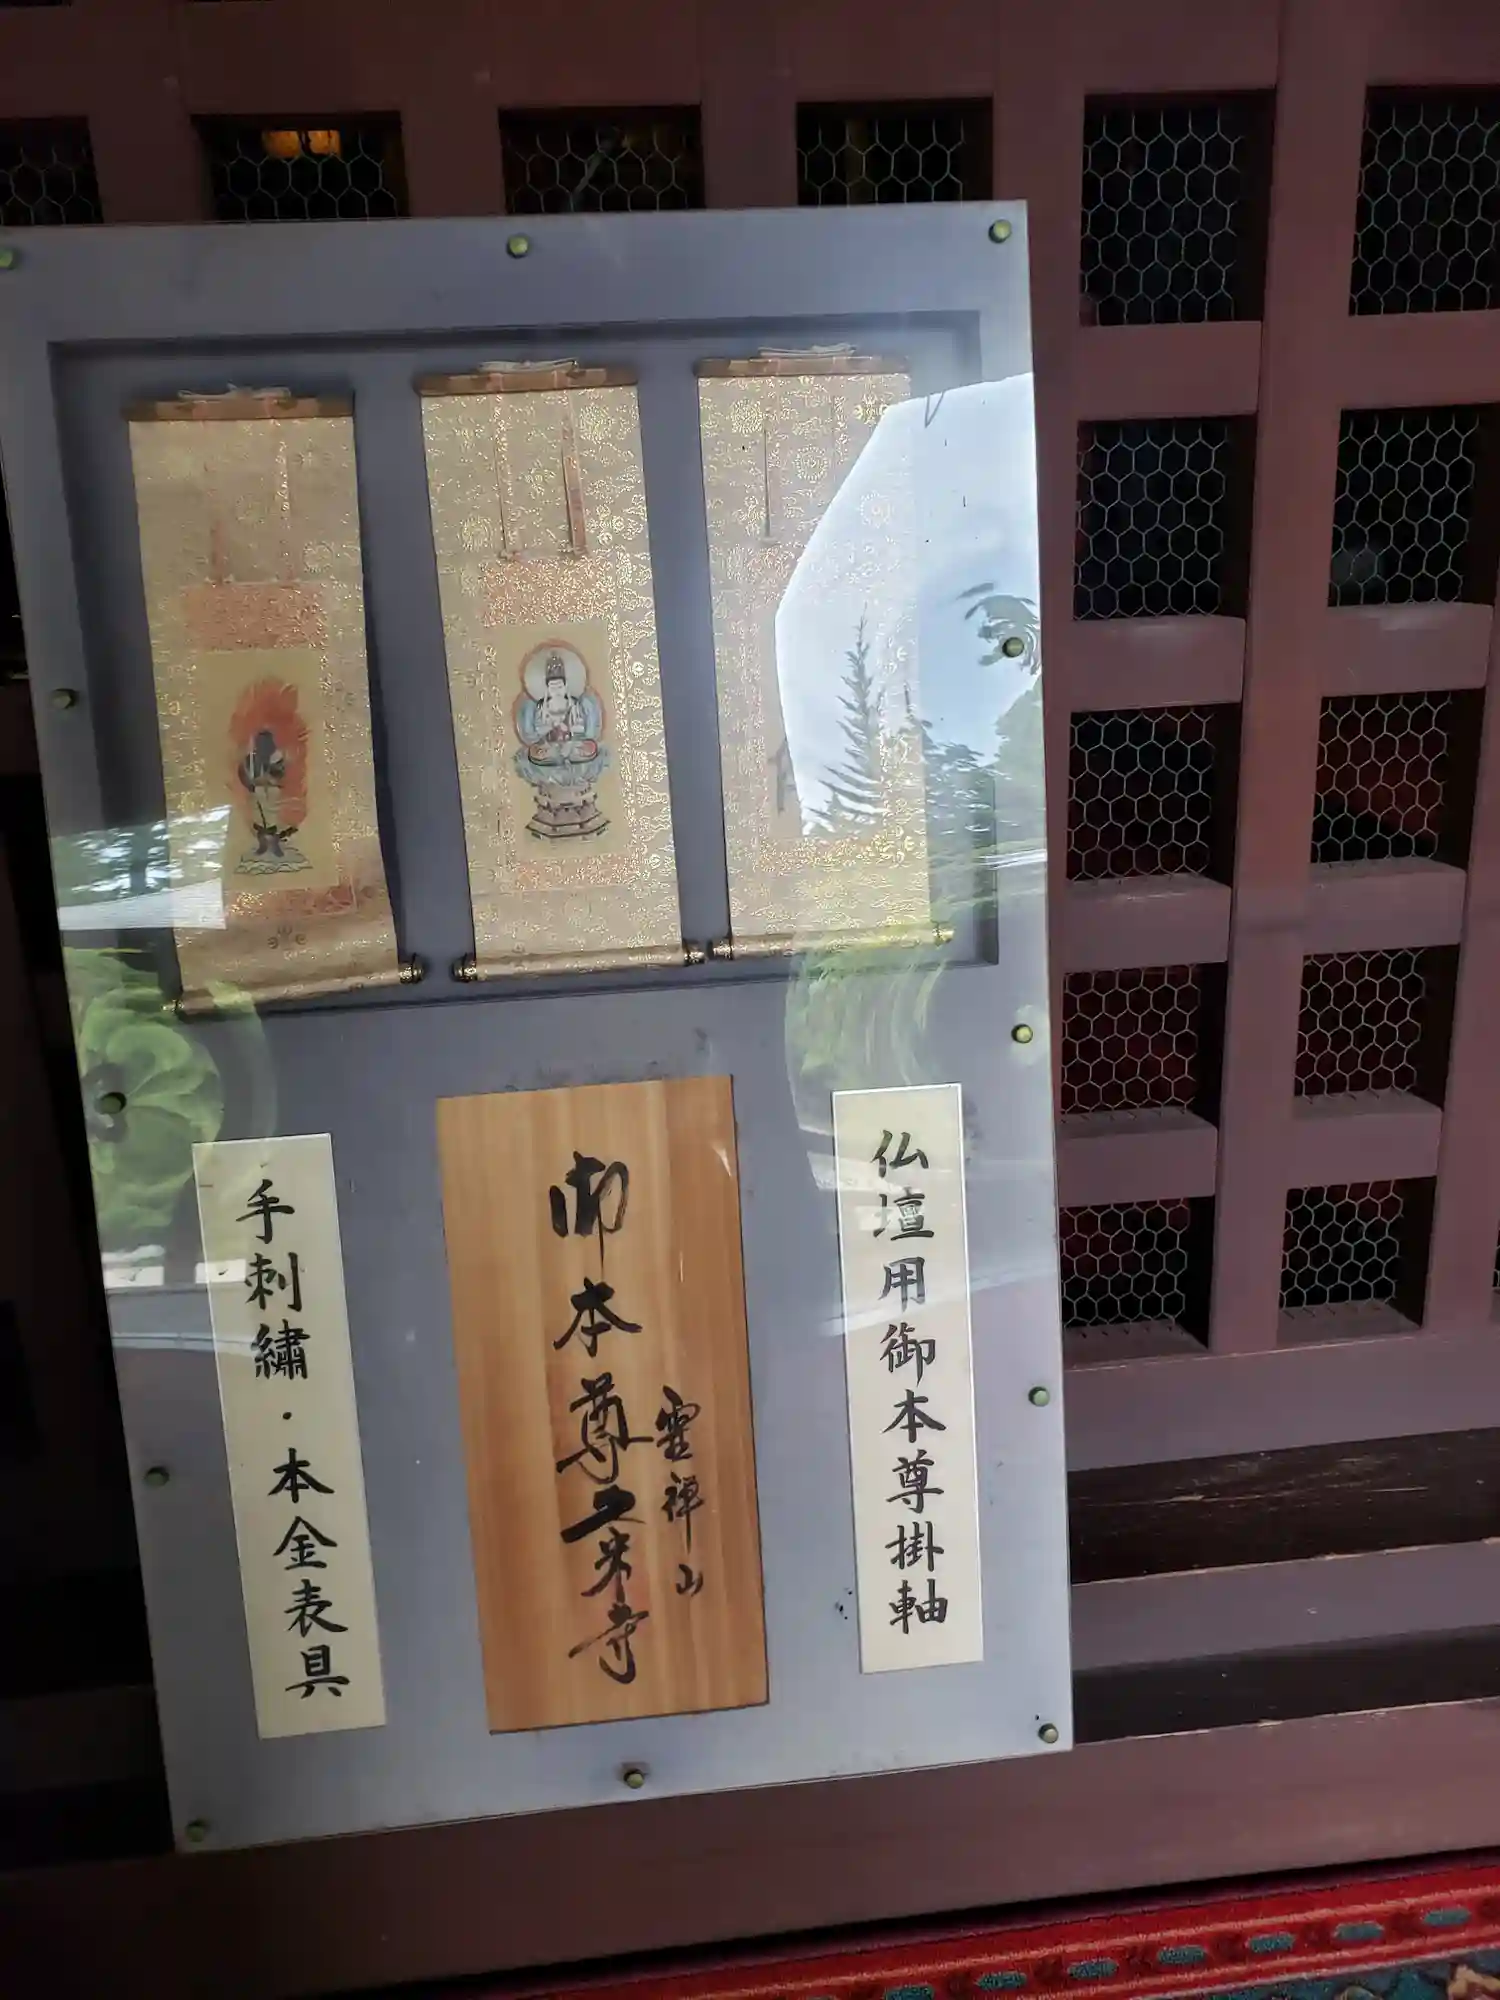 仏壇用御本尊掛軸
霊禅山
御本尊 米寺
手刺繍・本金表具